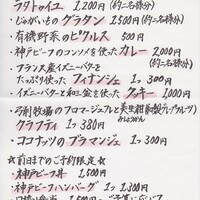 ラタトゥイユ 1,200円(約二名様分)
じゃがいものグラタン 1,500円(約二名様分)
・有機野菜のピクルス 500円
・神戸ビーフのコンソメを使ったカレー 2,000円(約二名様分)
・フランス産イズニーバターを
たっぷり使ったフィナンシェ 1つ 300円
・イズニーバターと和三盆を使ったクッキー 1,000円
・弓削牧場のフロマージュフレと美生柑
クラフティ 1つ 380円
・ココナッツのブラマンジェ 1つ 300円
☆前日までのご予約限定☆
・神戸ビーフ丼 1,500円
・神戸ビーフハンバーグ 1つ 1,300円